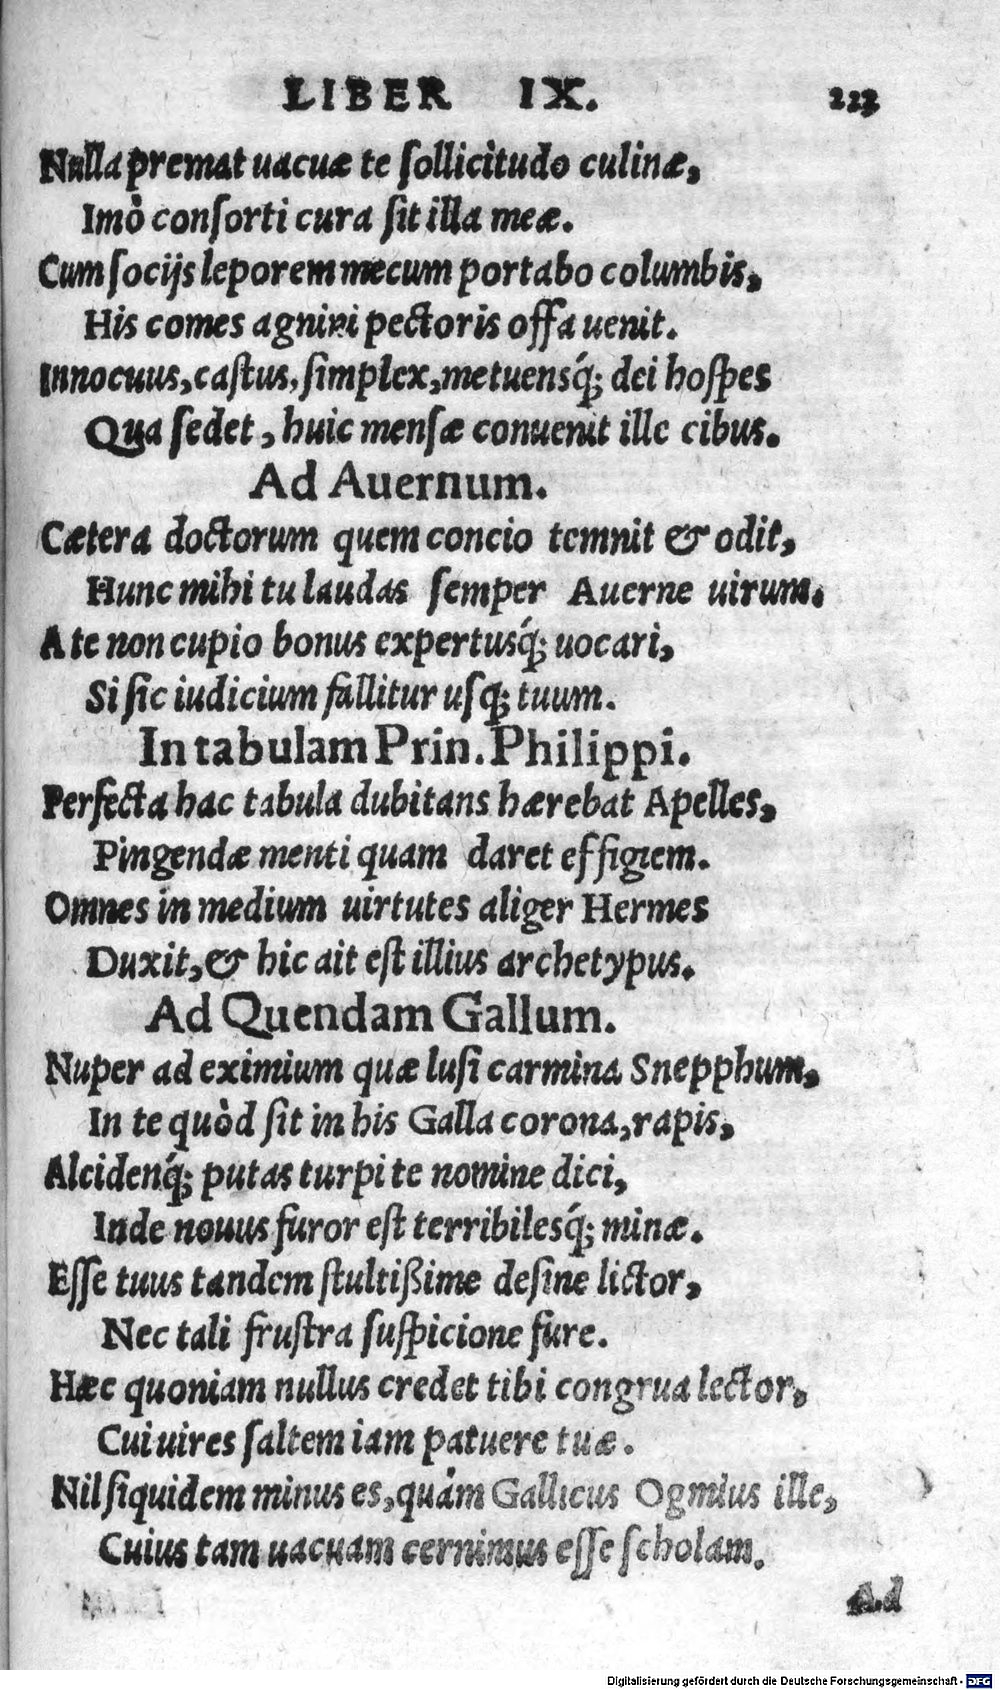 LIBER IX. 223
Nulla premat uacuæ te ſollicitudo culinæ,
Imò conſorti cura ſit illa meæ.
Cum ſocijs leporem mecum portabo columbis,
His comes agnini pectoris offa uenit.
Innocuus, caſtus, ſimplex, metuensq́; dei hoſpes
Qua ſedet, huic menſæ conuenit ille cibus.
Ad Auernum.
Cætera doctorum quem concio temnit & odit,
Hunc mihi tu laudas ſemper Auerne uirum.
A te non cupio bonus expertusq́; uocari,
Si ſic iudicium fallitur uſq; tuum.
In tabulam Prin. Philippi.
Perfecta hac tabula dubitans hærebat Apelles,
Pingendæ menti quam daret effigiem.
Omnes in medium uirtutes aliger Hermes
Duxit, & hic ait eſt illius archetypus.
Ad Quendam Gallum.
Nuper ad eximium quæ luſi carmina Snepphum,
In te quòd ſit in his Galla corona, rapis,
Alcidenq́; putas turpi te nomine dici,
Inde nouus furor eſt terribilesq́; minæ.
Eſſe tuus tandem ſtultißime deſine lictor,
Nec tali fruſtra ſuſpicione fure.
Hæc quoniam nullus credet tibi congrua lector,
Cui uires ſaltem iam patuere tuæ.
Nil ſiquidem minus es, quàm Gallicus Ogmius ille,
Cuius tam uacuam cernimus eſſe ſcholam.
Ad
Digitalisierung gefördert durch die Deutsche Forschungsgemeinschaft - DFG